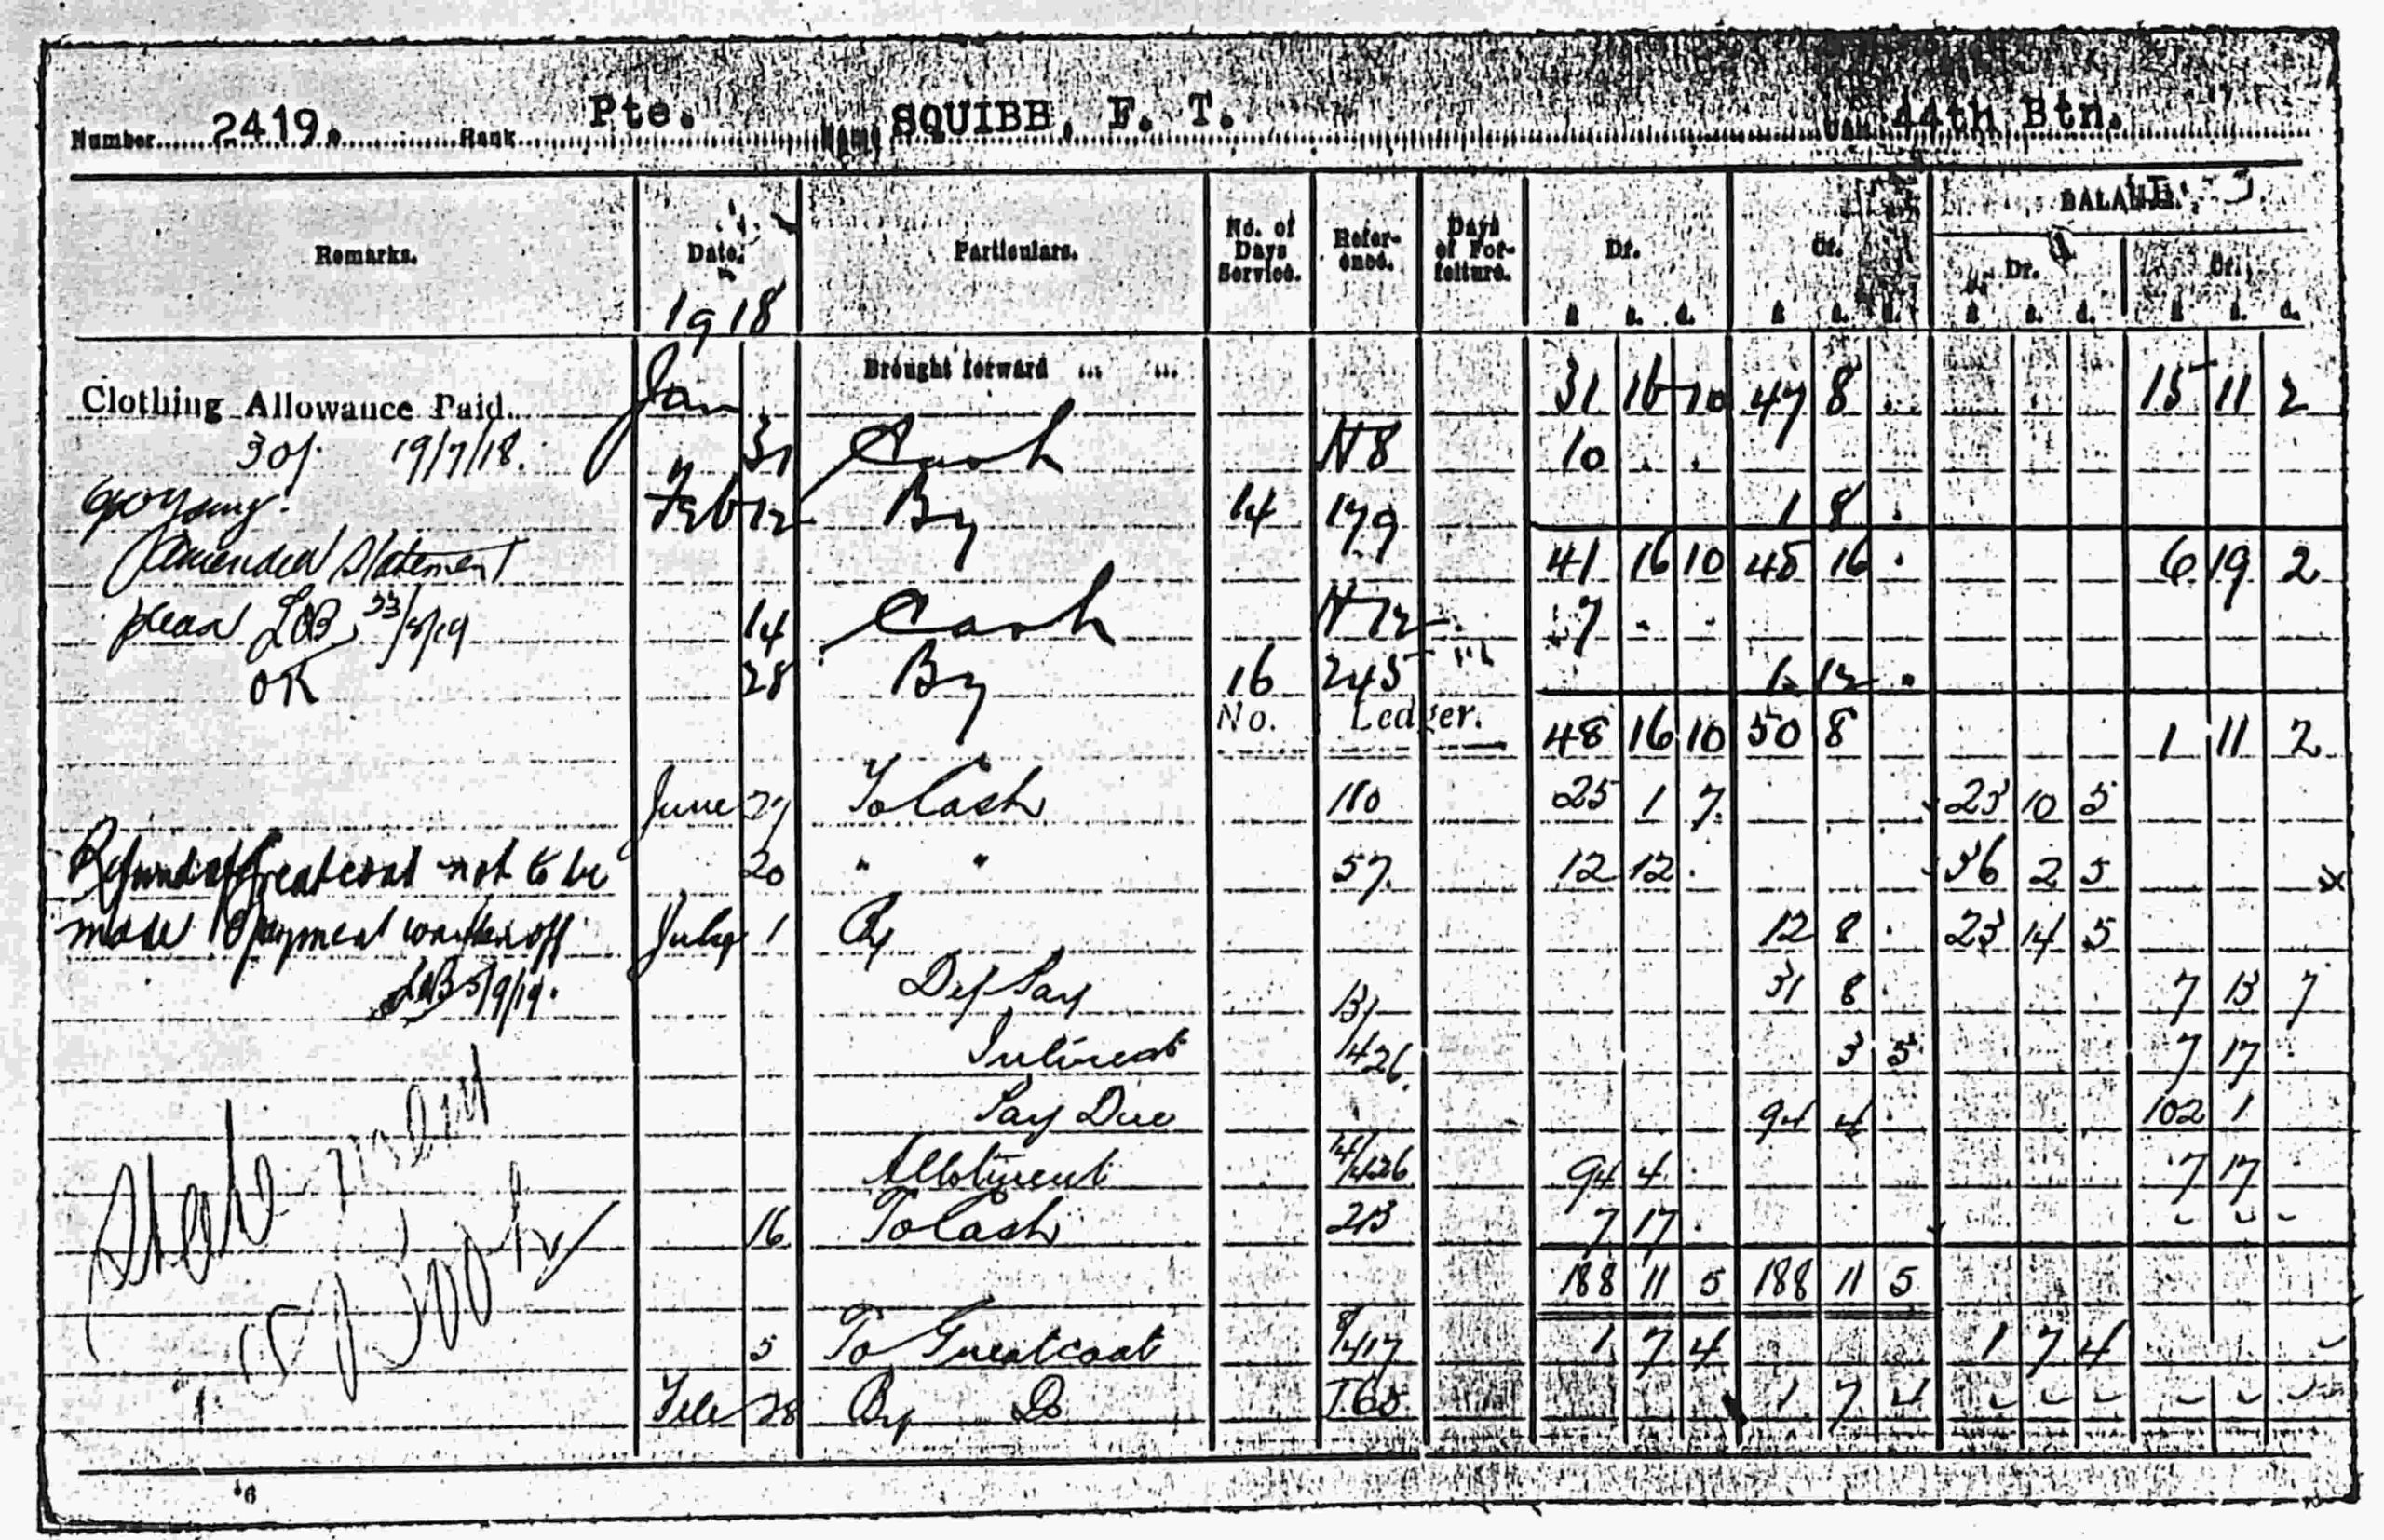 Number 2419. Rank Pte. Name SQUIBB, F. T. Unit 44th Btn.
Remarks. Date. Particulars. No. of Days Service. Refer-ence. Days of For-feiture. Dr. Cr. BALANCE.
Dr. Cr.
1918 £ s. d. £ s. d. £ s. d. £ s. d.
Brought forward ... ...
Clothing Allowance Paid Jan 31 16 10 47 8 . 15 11 2
30/. 19/7/18. 31 Cash N8 10 . .
Feb 12 By 14 179 1 8 .
Amended Statement 41 16 10 48 16 . 6 19 2
14 Cash N12 7 . .
OK 28 By 16 245 1 12 .
No. Ledger. 48 16 10 50 8 1 11 2
June 27 To Cash 180 25 1 7 23 10 5
Refund of Greatcoat not to be 20 " " 57. 12 12 . 36 2 5
made Repayment written off July 1 By 12 8 . 23 14 5
LCB 5/9/19. Def Pay 131 31 8 . 7 13 7
Interest 1/426. 3 5 7 17 .
Pay Due 94 4 . 102 1
Allotment 4/426 94 4 . 7 17 .
16 To Cash 213 7 17 .
Statement 188 11 5 188 11 5
5 To Greatcoat 8/417 1 7 4 1 7 4
Feb 28 By Do T65 1 7 4